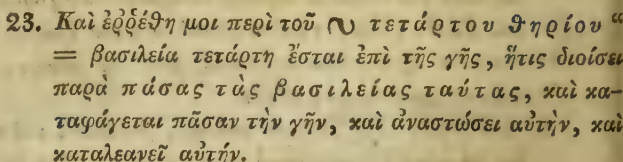 23. Καὶ ἐῤῥέθη μοι περὶ τοῦ ᔕ τετάρτου θηρίου “
= βασιλεία τετάρτη ἔσται ἐπὶ τῆς γῆς, ἥτις διοίσει
παρὰ πάσας τὰς βασιλείας ταύτας, καὶ κα-
ταφάγεται πᾶσαν τὴν γῆν, καὶ ἀναστώσει αὐτὴν, καὶ
καταλεανεῖ αὐτήν.